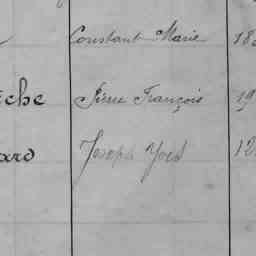 Constant Marie 18
iche Pierre François 19
ard Joseph Yves 12